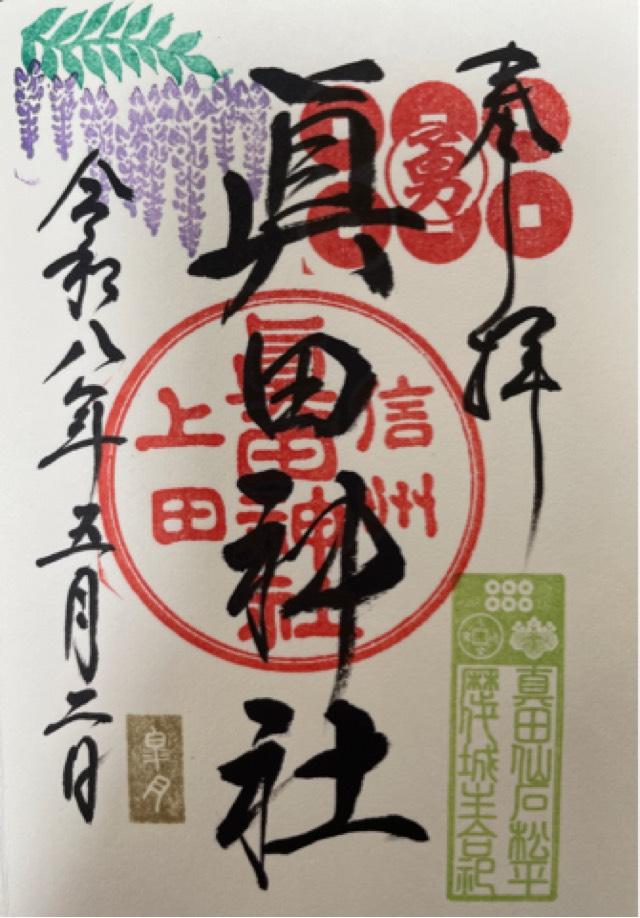 奉拝
勇
眞田神社
信州
眞田神社
上田
令和八年五月二日
皐月
真田仙石松平
歴代城主合祀